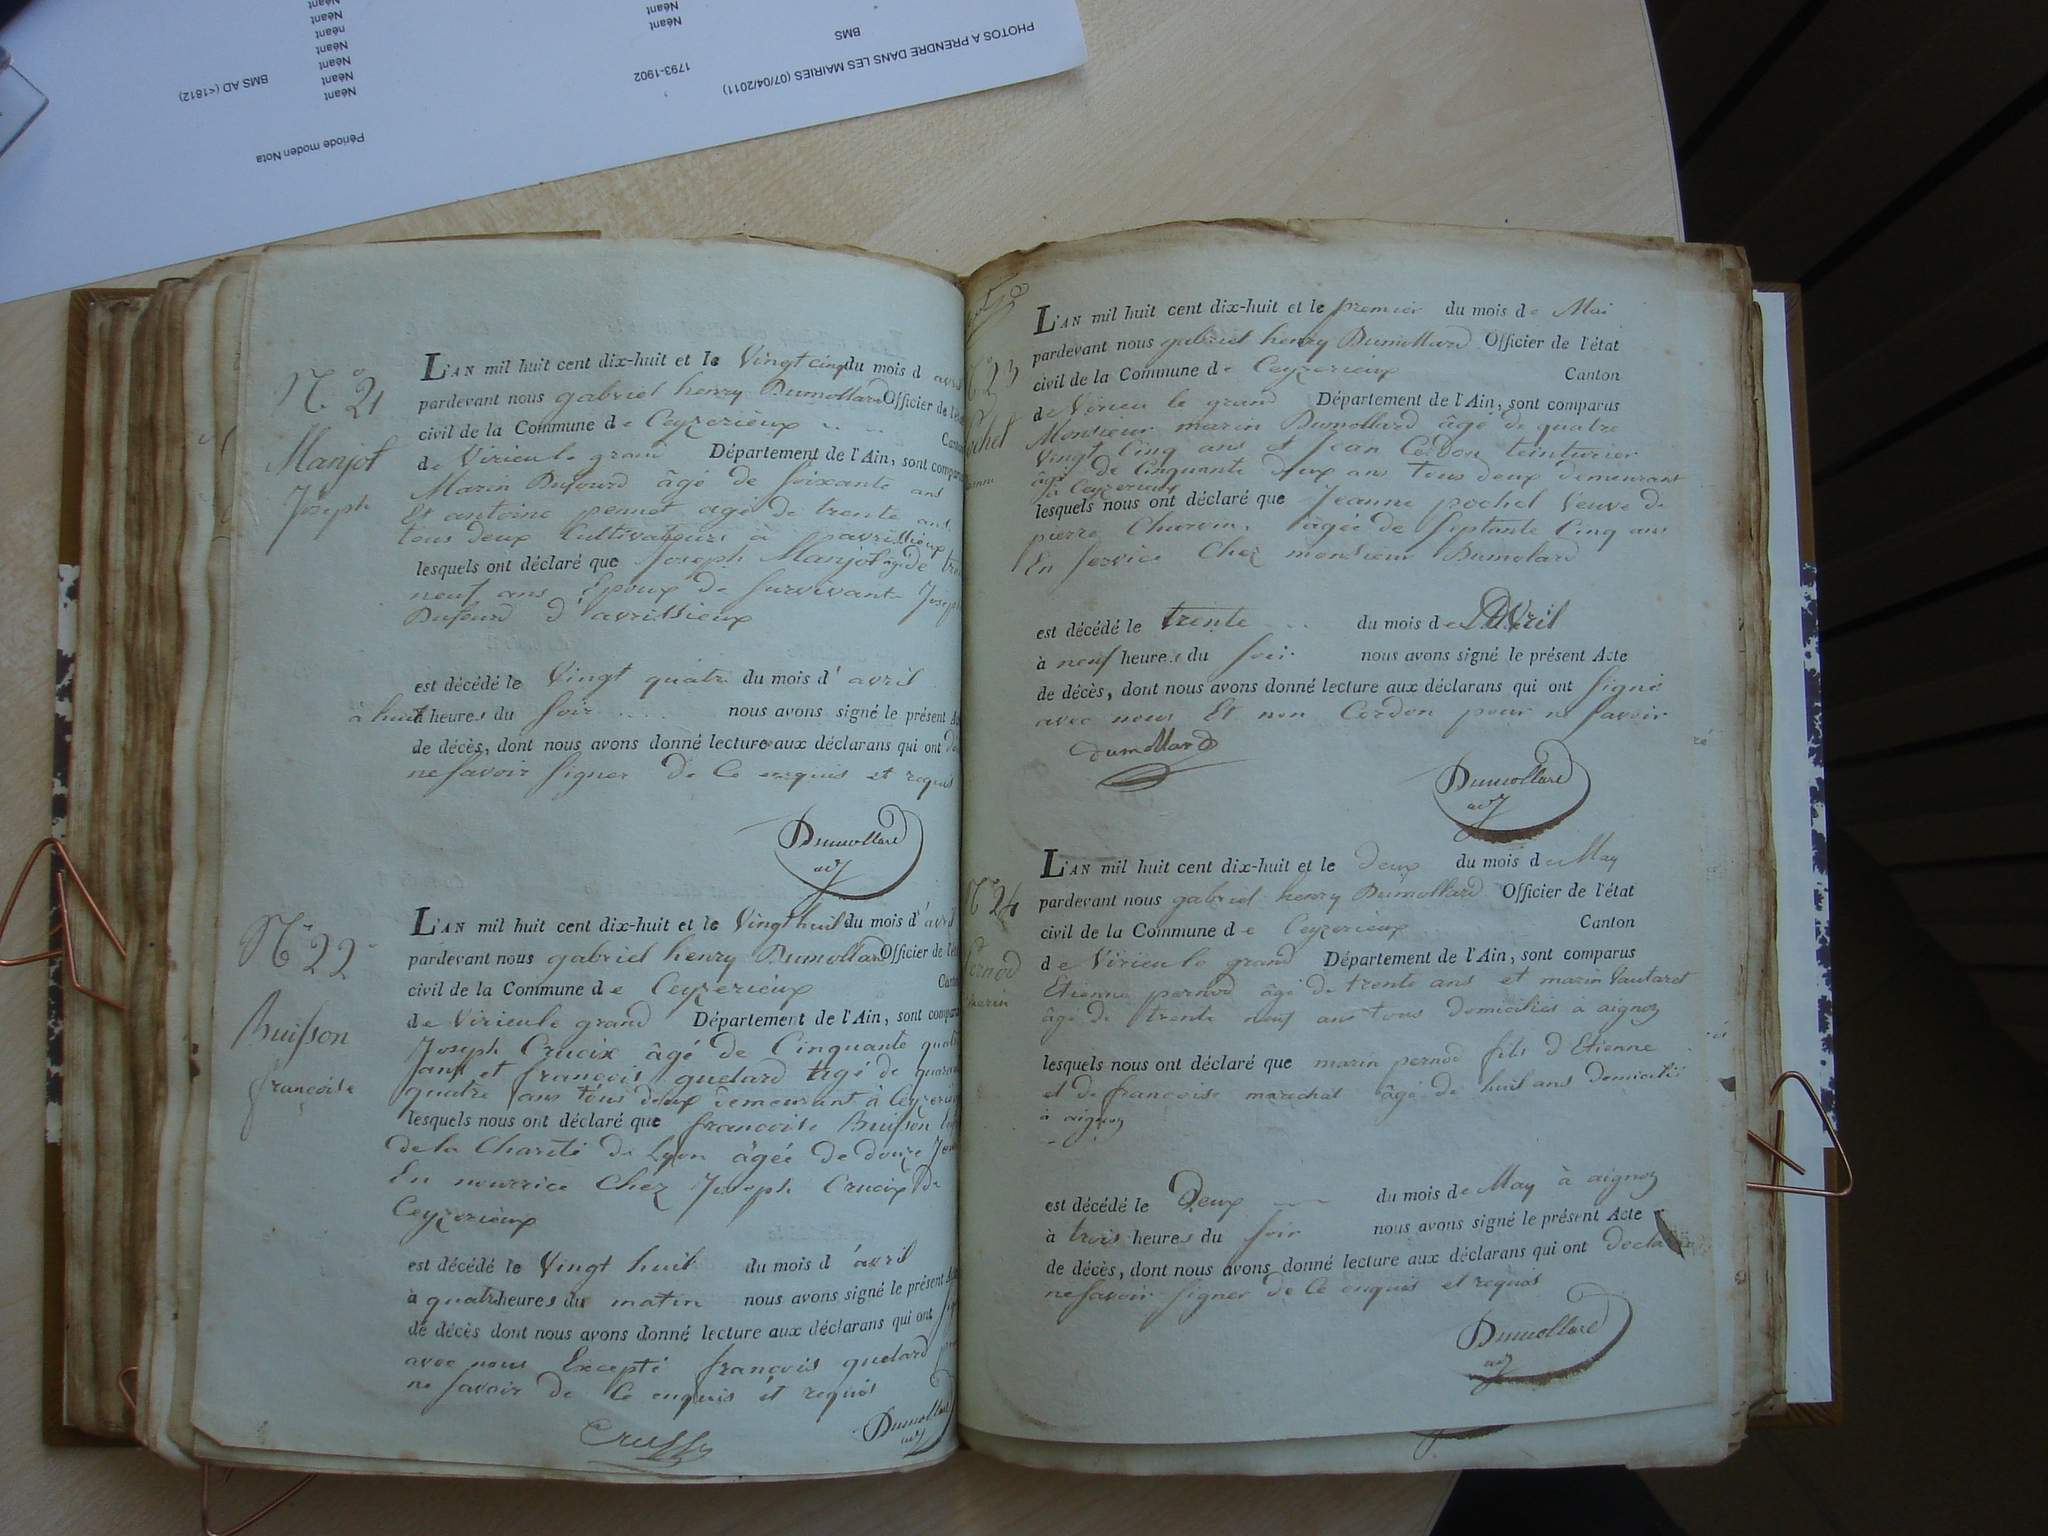 PHOTOS A PRENDRE DANS LES MAIRIES (07/04/2011)
BMS
Néant
Néant
1793-1902
BMS AD (<1812)
Néant
Néant
néant
Néant
Néant
Néant
Néant
Période moden Nota
N.° 21
Manjot
Joseph
L'AN mil huit cent dix-huit et le Vingt cinq du mois d avril
pardevant nous gabriel henry Dumollard Officier de l'état
civil de la Commune de Ceyzerieux
de Virieu le grand Département de l'Ain, sont comparus
Marin Dufourd âgé de soixante ans
Et antoine pennet âgé de trente ans
tous deux Cultivateurs à avrissieux
lesquels ont déclaré que Joseph Manjot âgé de
neuf ans Epoux de survivante
Dufourd d'avrissieux
est décédé le Vingt quatre du mois d'avril
à huit heures du soir nous avons signé le présent
de décès, dont nous avons donné lecture aux déclarans qui ont
ne savoir signer de Ce enquis et requis
Dumollard
adj
N° 22
Buisson
françoise
L'AN mil huit cent dix-huit et le Vingt huit du mois d'avril
pardevant nous gabriel henry Dumollard Officier de
civil de la Commune de Ceyzerieux
de Virieu le grand Département de l'Ain, sont
Joseph Crucix âgé de Cinquante quatre
ans et françois quelard âgé de
quatre ans tous deux demeurant à
lesquels nous ont déclaré que françoise Buisson
de la Charité de Lyon âgée de douze
En nourrice Chez Joseph Crucix de
Ceyzerieux
est décédé le Vingt huit du mois d'avril
à quatre heures du matin nous avons signé le présent
de décès dont nous avons donné lecture aux déclarans qui ont
avec nous Excepté françois quelard
ne savoir de Ce enquis et requis
Dumollard
adj
N° 23
L'AN mil huit cent dix-huit et le premier du mois de Mai
pardevant nous gabriel henry Dumollard Officier de l'état
civil de la Commune de Ceyzerieux Canton
de Virieu le grand Département de l'Ain, sont comparus
Monsieur marin Dumollard âgé de quatre
Vingt Cinq ans et Jean Cordon teinturier
âgé de Cinquante deux ans tous deux demeurant
à Ceyzerieux
lesquels nous ont déclaré que Jeanne pochet Veuve de
pierre Charvin âgée de septante Cinq ans
En service Chez monsieur Dumolard
est décédé le trente du mois de Avril
à neuf heures du soir nous avons signé le présent Acte
de décès, dont nous avons donné lecture aux déclarans qui ont signé
avec nous Et non Cordon pour ne savoir
dumollard
Dumollard
adj
N° 24
pernod
marin
L'AN mil huit cent dix-huit et le deux du mois de May
pardevant nous gabriel henry Dumollard Officier de l'état
civil de la Commune de Ceyzerieux Canton
de Virieu le grand Département de l'Ain, sont comparus
Etienne pernod âgé de trente ans et marin
âgé de trente neuf ans tous domiciliés à aignoz
lesquels nous ont déclaré que marin pernod fils d'Etienne
et de françoise maréchal âgé de huit ans domicilié
à aignoz
est décédé le Deux du mois de May à aignoz
à trois heures du soir nous avons signé le présent Acte
de décès, dont nous avons donné lecture aux déclarans qui ont
ne savoir signer de Ce enquis et requis
Dumollard
adj